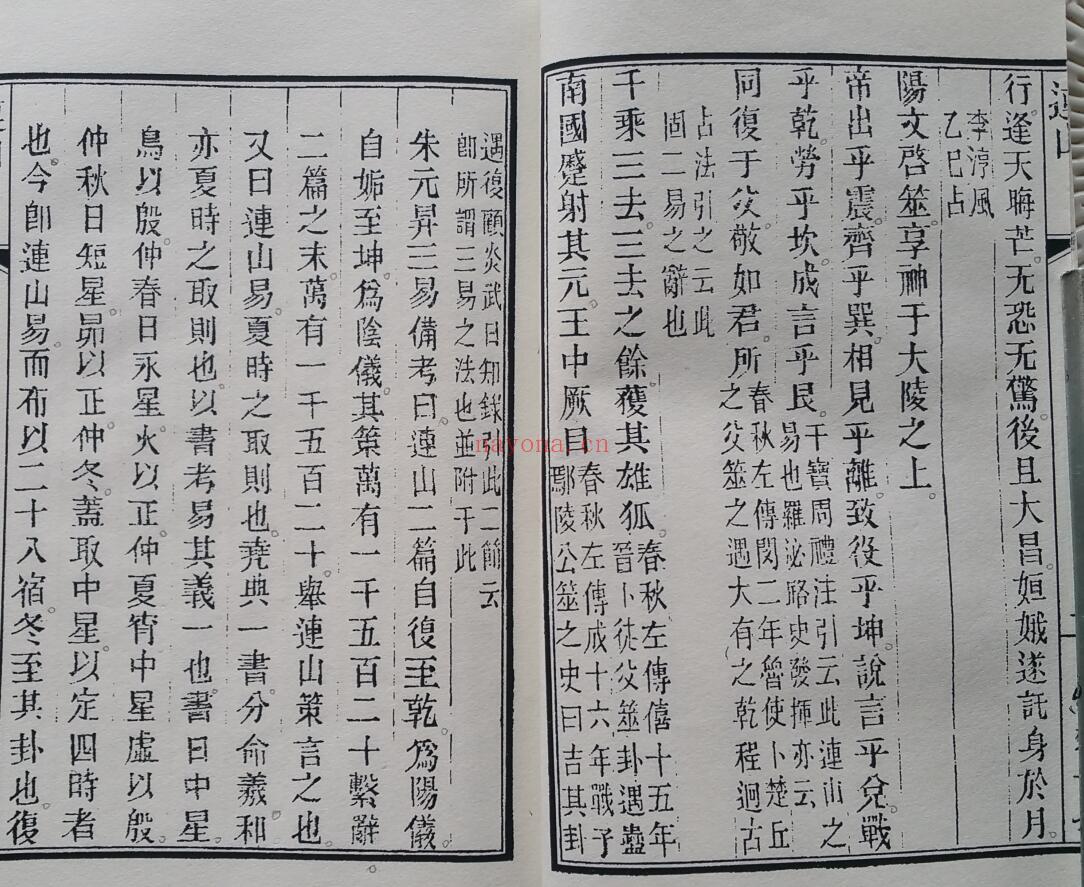 連山
行逢天晦芒无恐无驚後且大昌姮娥遂託身於月
李淳風
乙巳占
陽文啓筮享神于大陵之上
帝出乎震齊乎巽相見乎離致役乎坤說言乎兌戰
乎乾勞乎坎成言乎艮干寶周禮注引云此連山之
易也羅泌路史發揮亦云
同復于父敬如君所春秋左傳閔二年魯使卜楚丘
之父筮之遇大有之乾程迥古
占法引之云此
固二易之辭也
千乘三去三去之餘獲其雄狐春秋左傳僖十五年
晉卜徒父筮卦遇蠱
南國蹙射其元王中厥目春秋左傳成十六年戰于
鄢陵公筮之史曰吉其卦
遇復顧炎武日知錄引此二節云
卽所謂三易之法也並附于此
朱元昇三易備考曰連山二篇自復至乾爲陽儀
自姤至坤爲陰儀其策萬有一千五百二十繫辭
二篇之末萬有一千五百二十舉連山策言之也
又曰連山易夏時之取則也堯典一書分命羲和
亦夏時之取則也以書考易其義一也書曰中星
鳥以殷仲春日永星火以正仲夏宵中星虛以殷
仲秋日短星昴以正仲冬蓋取中星以定四時者
也今卽連山易而布以二十八宿冬至其卦也復
nayona.cn